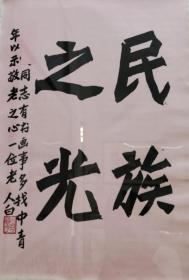 民族
之光
同志有书画事多找中青
年以示敬老之心一位老人白